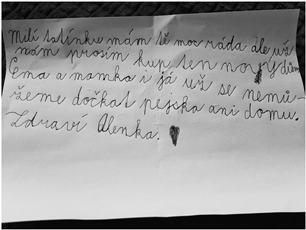 Milí tatínku mám tě moc ráda ale už
nám prosím kup ten nový dům
Ema a mamka i já už se nemů-
žeme dočkat pejska ani domu.
Zdraví Alenka.